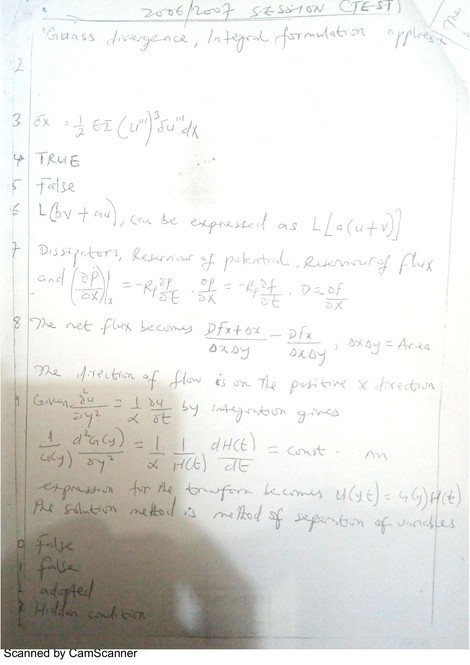 2006/2007 SESSION (TEST)
Guass divergence, Integral formulation
2
3 δx = 1/2 EI (u''')³ δu''' dx
4 TRUE
5 False
6 L(bv + au), can be expressed as L[a(u+v)]
7 Dissipators, Reservour of potential, Reservour of flux
and (∂P/∂x)|x = -Rp ∂P/∂t . ∂P/∂x = -Rp ∂f/∂t . D = ∂F/∂x
8 The net flux becomes Dfx+Δx/ΔxΔy - Dfx/ΔxΔy ; ΔxΔy = Area
The direction of flow is on the positive x direction
Given ∂²u/∂y² = 1/α ∂u/∂t by integration gives
1/G(y) d²G(y)/∂y² = 1/α 1/H(t) dH(t)/dt = const. An
expression for the transform becomes U(y,t) = G(y)H(t)
the solution method is method of separation of variables
0 False
1 False
2 adapted
3 Hidden condition
Scanned by CamScanner